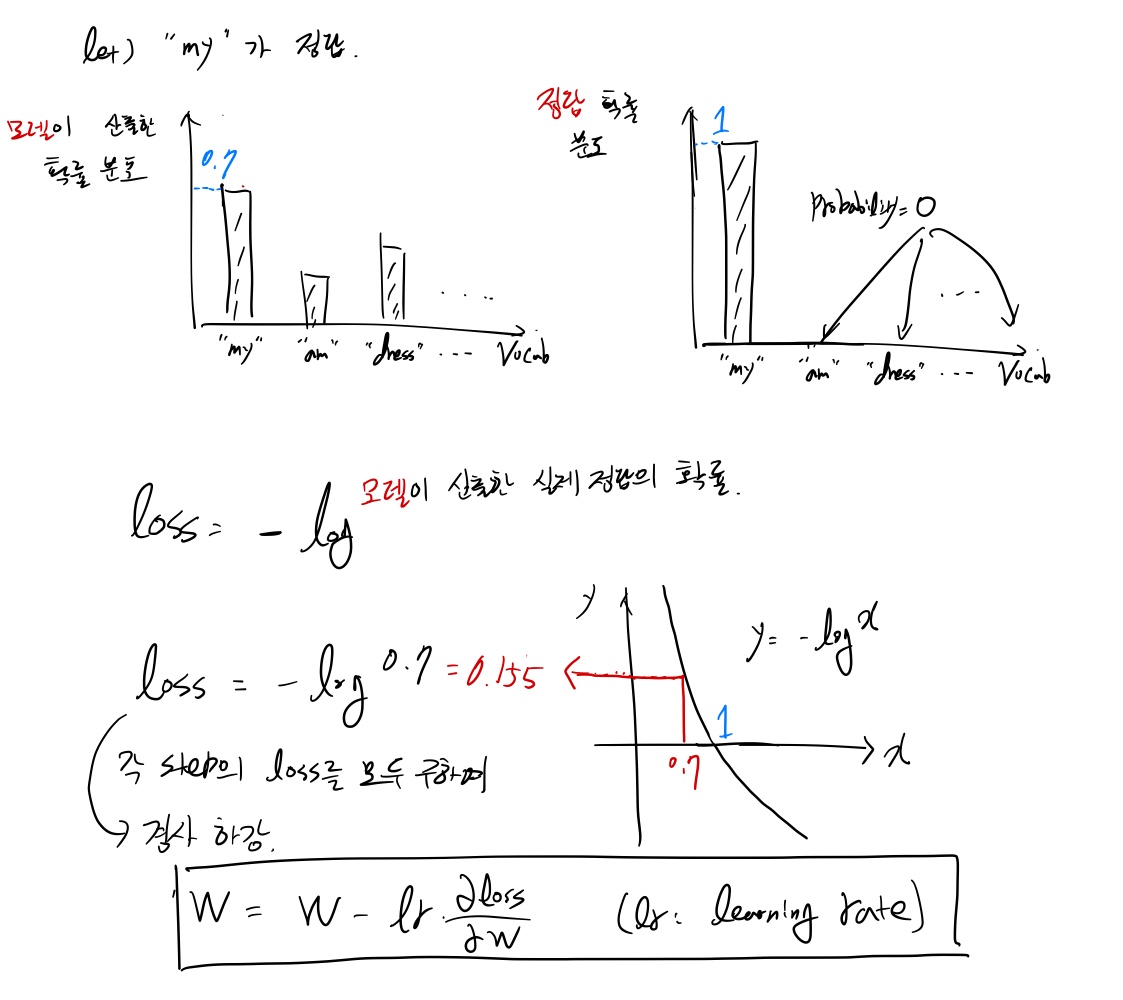 let) "my"가 정답.
모델이 산출한
확률 분포
0.7
"my" "am" "dress" ... Vocab
정답 확률
분포
1
Probability = 0
"my" "am" "dress" ... Vocab
loss = - log 모델이 산출한 실제 정답의 확률.
loss = - log 0.7 = 0.155
각 step의 loss를 모두 구하여
→ 경사 하강.
y
y = -log x
1
x
0.7
W = W - lr · ∂loss/∂W (lr: learning rate)